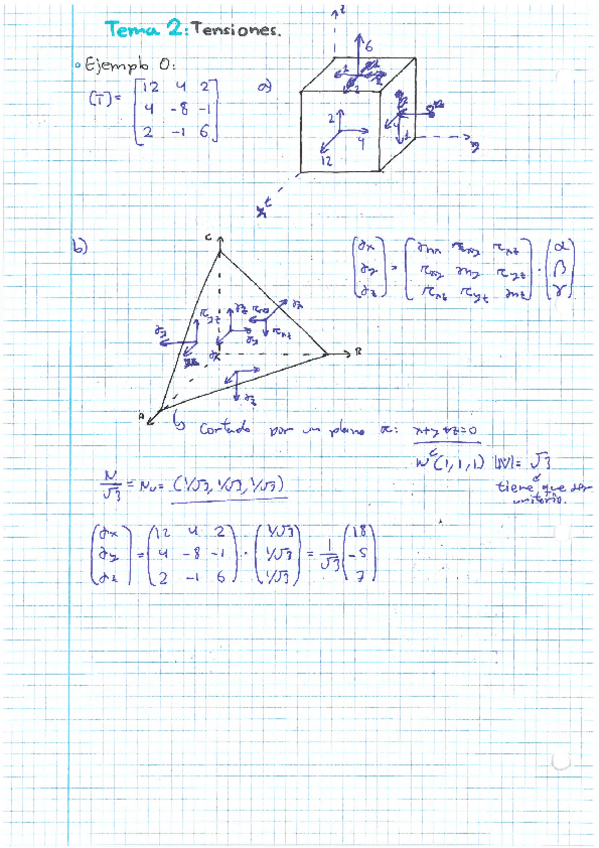 Tema 2: Tensiones.
Ejemplo 0:
[T]= [12 4 2
4 -8 -1
2 -1 6]
a)
z
6
1
2
2
4
12
4
8
1
y
x
b)
C
B
A
(σx σy σz) = (σnx τxy τxz
τxy σny τyz
τxz τyz σnz) · (α β γ)
τyz
σz
σy
σx
τxz
σy
σz
b) Cortado por un plano π: x+y+z=0
N=(1,1,1) |N|= √3
tiene que ser
unitario.
N/√3 = Nu = (1/√3, 1/√3, 1/√3)
(σx σy σz) = (12 4 2
4 -8 -1
2 -1 6) · (1/√3 1/√3 1/√3) = 1/√3 (18 -5 7)